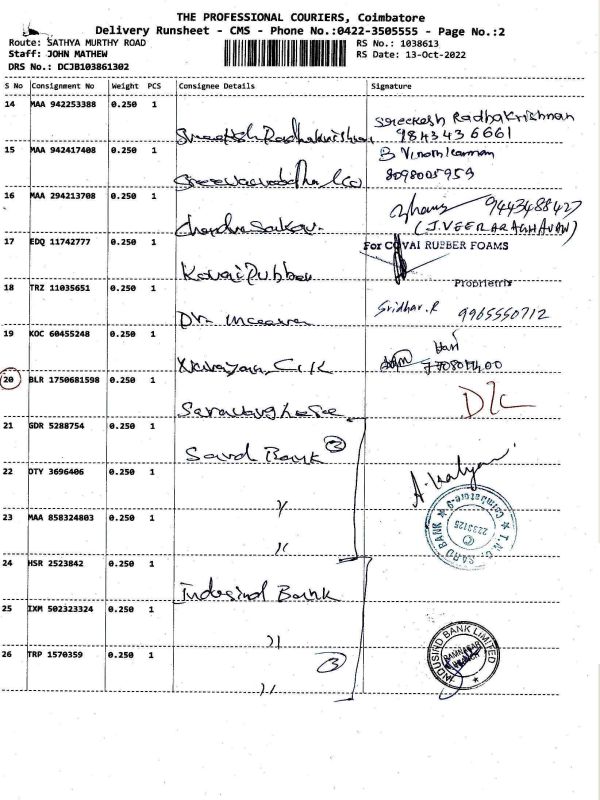 THE PROFESSIONAL COURIERS, Coimbatore
Delivery Runsheet - CMS - Phone No.:0422-3505555 - Page No.:2
Route: SATHYA MURTHY ROAD
RS No.: 1038613
Staff: JOHN MATHEW
RS Date: 13-Oct-2022
DRS No.: DCJB103861302
S No Consignment No Weight PCS Consignee Details Signature
14 MAA 942253388 0.250 1
Sreeckesh Radhakrishnan
9843436661
15 MAA 942417408 0.250 1
8098005959
16 MAA 294213708 0.250 1
9443488427
(J.VEERARAGHAVAN)
17 EDQ 11742777 0.250 1
For COVAI RUBBER FOAMS
Proprietrix
18 TRZ 11035651 0.250 1
Sridhar.R 9965550712
19 KOC 60455248 0.250 1
Hari
20 BLR 1750681598 0.250 1
D/C
21 GDR 5288754 0.250 1 Sard Bank 3
22 OTY 3696406 0.250 1 "
23 MAA 858324803 0.250 1 "
T.N.C. SARD BANK ★ Coimbatore-9 ★
2233125
24 HSR 2523842 0.250 1 Indusind Bank
25 IXM 502323324 0.250 1 "
26 TRP 1570359 0.250 1 " 3
INDUSIND BANK LIMITED
RAMNAGAR
BRANCH